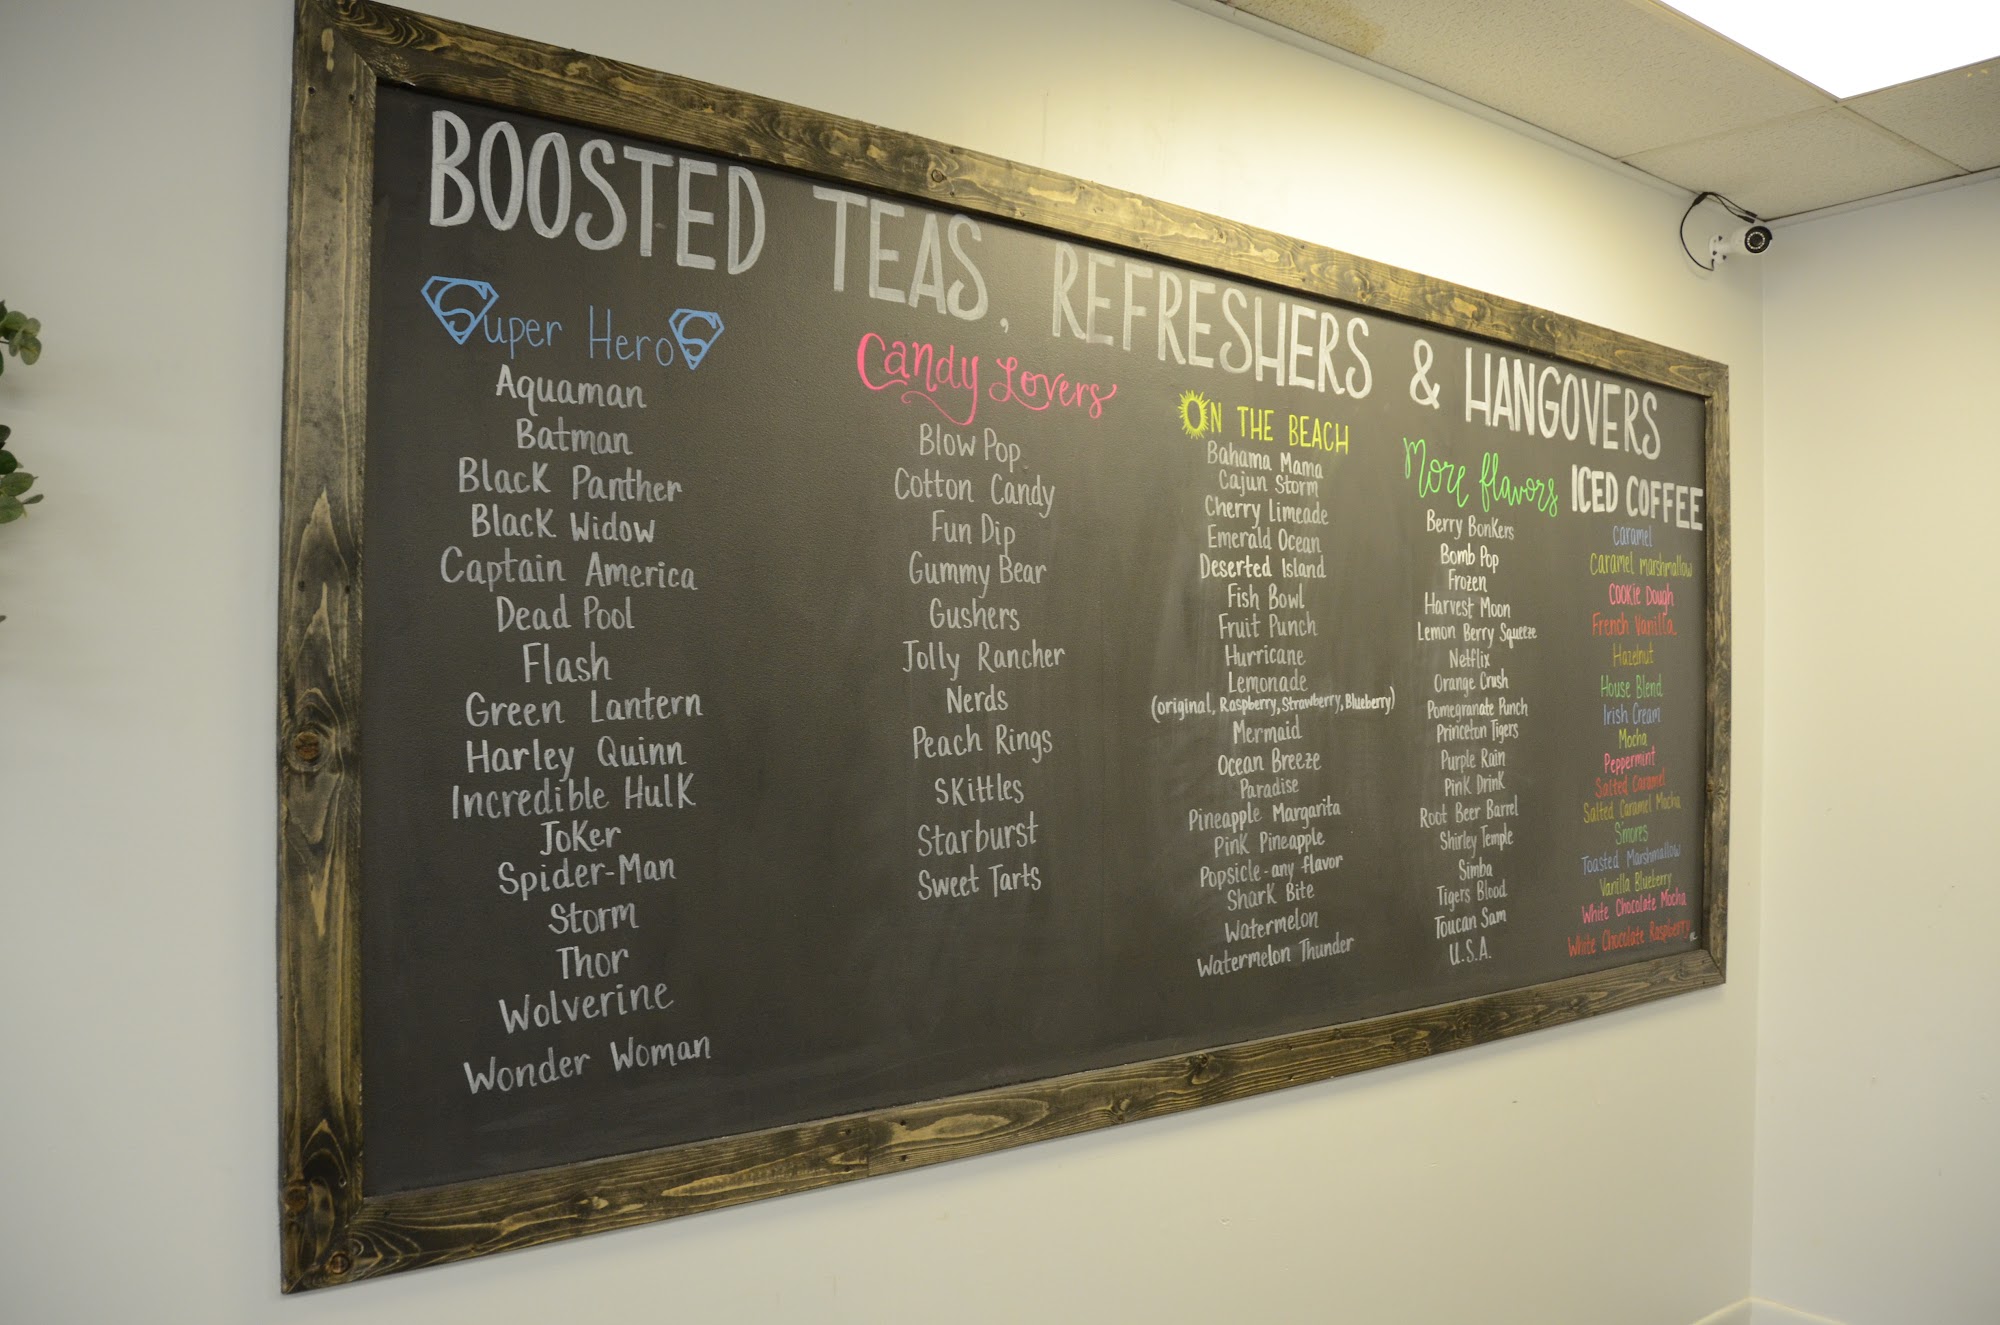 BOOSTED TEAS, REFRESHERS & HANGOVERS
Super HeroS
Aquaman
Batman
Black Panther
Black Widow
Captain America
Dead Pool
Flash
Green Lantern
Harley Quinn
Incredible Hulk
Joker
Spider-Man
Storm
Thor
Wolverine
Wonder Woman
Candy Lovers
Blow Pop
Cotton Candy
Fun Dip
Gummy Bear
Gushers
Jolly Rancher
Nerds
Peach Rings
Skittles
Starburst
Sweet Tarts
ON THE BEACH
Bahama Mama
Cajun Storm
Cherry Limeade
Emerald Ocean
Deserted Island
Fish Bowl
Fruit Punch
Hurricane
Lemonade
(original, Raspberry, Strawberry, Blueberry)
Mermaid
Ocean Breeze
Paradise
Pineapple Margarita
Pink Pineapple
Popsicle-any flavor
Shark Bite
Watermelon
Watermelon Thunder
More flavors
Berry Bonkers
Bomb Pop
Frozen
Harvest Moon
Lemon Berry Squeeze
Netflix
Orange Crush
Pomegranate Punch
Princeton Tigers
Purple Rain
Pink Drink
Root Beer Barrel
Shirley Temple
Simba
Tigers Blood
Toucan Sam
U.S.A.
ICED COFFEE
Caramel
Caramel marshmallow
Cookie Dough
French Vanilla
Hazelnut
House Blend
Irish Cream
Mocha
Peppermint
Salted Caramel
Salted Caramel Mocha
S'mores
Toasted Marshmallow
Vanilla Blueberry
White Chocolate Mocha
White Chocolate Raspberry